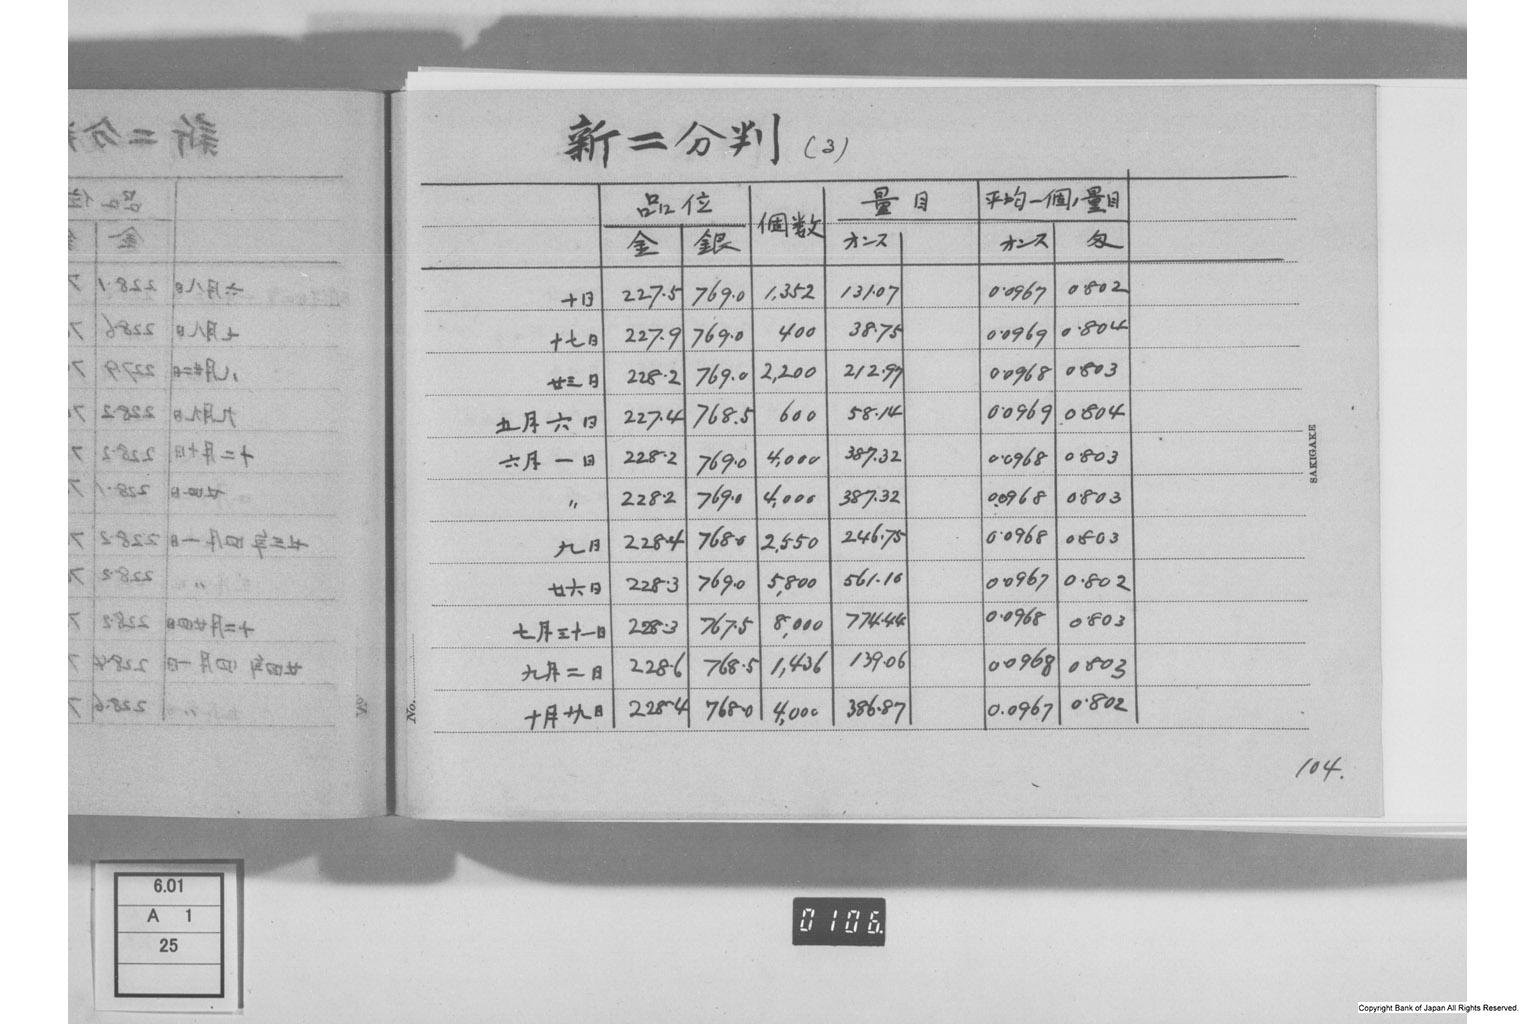 新二分判 (3)
品位 個数 量目 平均一個ノ量目
金 銀 オンス オンス 匁
十日 227.5 769.0 1,352 131.07 0.0967 0.802
十七日 227.9 769.0 400 38.75 0.0969 0.804
廿三日 228.2 769.0 2,200 212.97 0.0968 0.803
五月六日 227.4 768.5 600 58.14 0.0969 0.804
六月一日 228.2 769.0 4,000 387.32 0.0968 0.803
〃 228.2 769.0 4,000 387.32 0.0968 0.803
九日 228.4 768.0 2,550 246.75 0.0968 0.803
廿六日 228.3 769.0 5,800 561.10 0.0967 0.802
七月三十一日 228.3 767.5 8,000 774.44 0.0968 0.803
九月二日 228.6 768.5 1,436 139.06 0.0968 0.803
十月廿九日 228.4 768.0 4,000 386.87 0.0967 0.802
No.
SAKIGAKE
104.
6.01
A 1
25
0106
Copyright Bank of Japan All Rights Reserved.